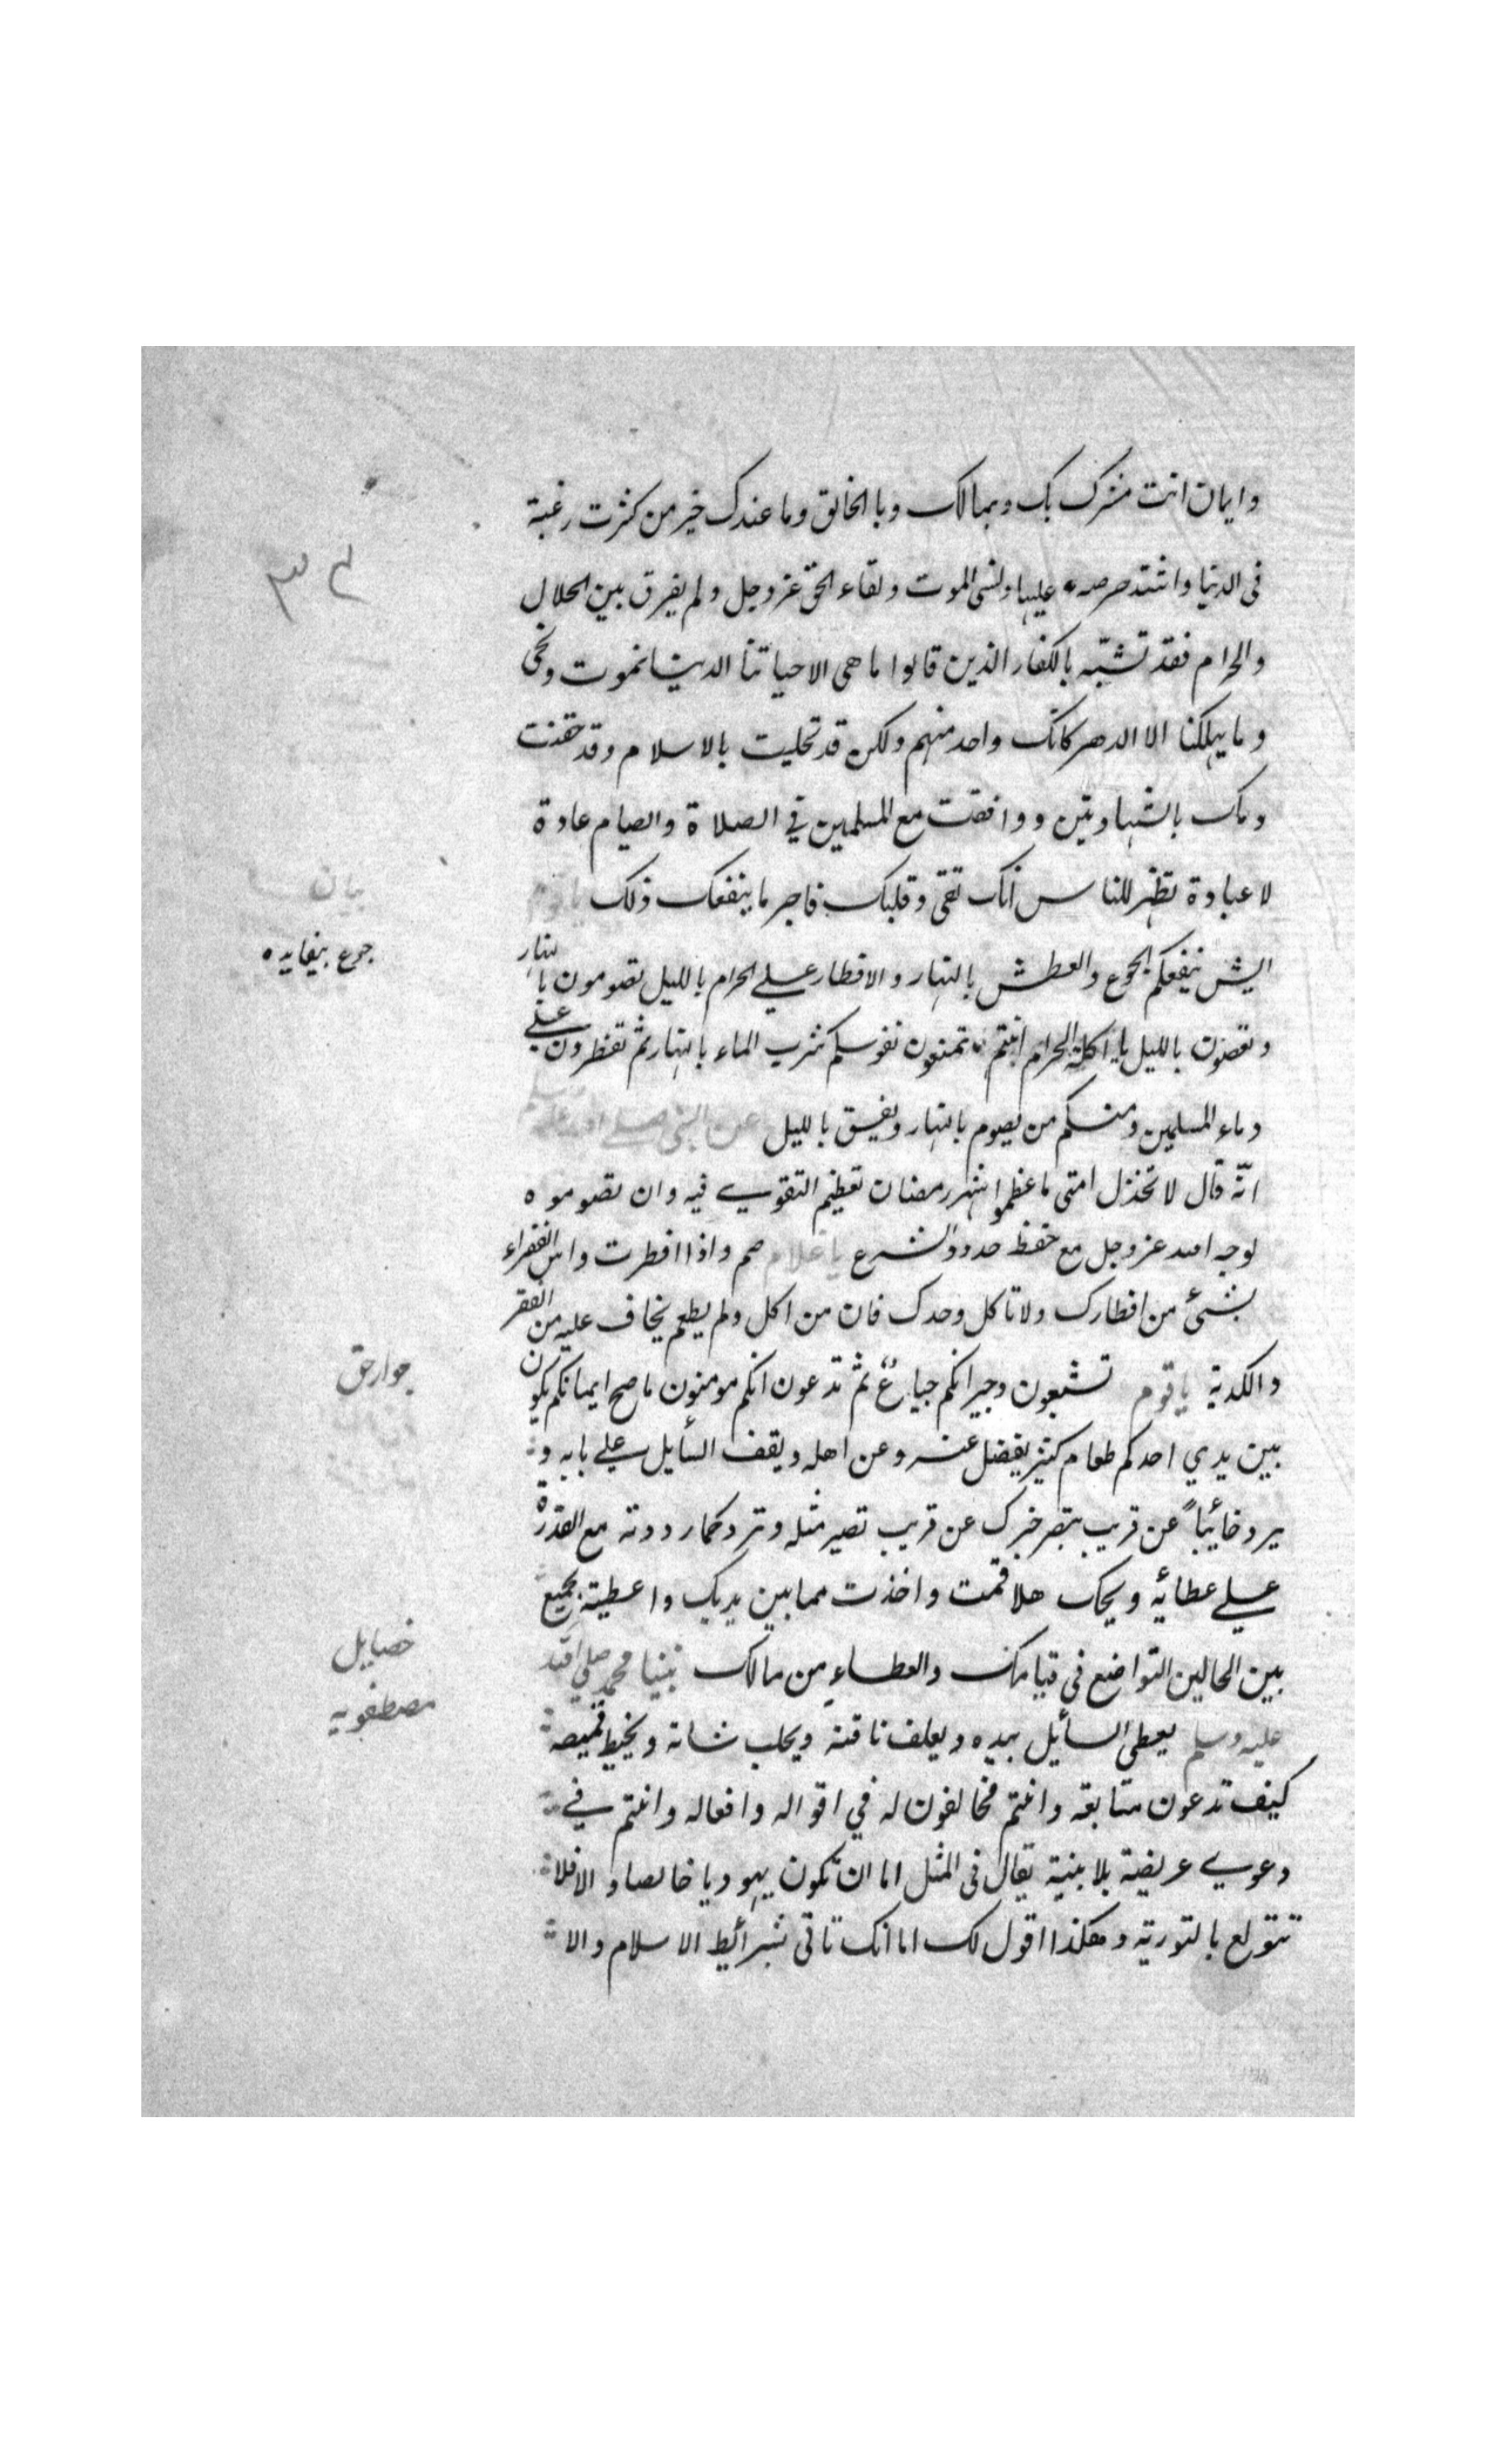 وايمان انت مشرك بك وبمالك وبالخلق وما عندك خير من كثرت رغبة
فى الدنيا واشتد حرصه عليها ونسى الموت ولقاء الحق عز وجل ولم يفرق بين الحلال
والحرام فقد تشبّه بالكفار الذين قالوا ما هى الا حياتنا الدنيا نموت ونحى
وما يهلكنا الا الدهر كانك واحد منهم ولكن قد تحليت بالاسلام وقد حقنت
دمك بالشهادتين ووافقت مع المسلمين في الصلاة والصيام عادة
لا عبادة تظهر للناس انك تقى وقلبك فاجر ما ينفعك ذلك يا قوم
ايش ينفعكم الجوع والعطش بالنهار والافطار على الحرام بالليل تصومون بالنهار
وتعصون بالليل يا اكلة الحرام انتم تمنعون نفوسكم شرب الماء بالنهار ثم تفطرون على
دماء المسلمين ومنكم من يصوم بالنهار ويفسق بالليل عن النبى صلى الله عليه وسلم
انّه قال لا تخذل امتى ما عظموا شهر رمضان تعظيم التقوى فيه وان تصوموه
لوجه الله عز وجل مع حفظ حدود الشرع يا غلام صم واذا افطرت واس الفقراء
بشىء من افطارك ولا تاكل وحدك فان من اكل ولم يطعم يخاف عليه من الفقر
والكدية يا قوم تشبعون وجيرانكم جياع ثم تدعون انكم مومنون ما صح ايمانكم يكون
بين يدي احدكم طعام كثير يفضل عنه وعن اهله ويقف السأيل على بابه و
يرد خائيباً عن قريب تبصر خبرك عن قريب تصير مثله وترد كما رددته مع القدرة
على عطائيه ويحك هلا قمت واخذت مما بين يديك واعطيته تجمع
بين الحالين التواضع فى قيامك والعطاء من مالك نبينا محمد صلى الله
عليه وسلم يعطى السأيل بيده ويعلف ناقته ويحلب شاته ويخيط قميصه
كيف تدعون متابعته وانتم مخالفون له في اقواله وافعاله وانتم في
دعوى عريضة بلا بينة يقال فى المثل اما ان تكون يهوديا خالصا والا فلا
تتولع بالتورية وهكذا اقول لك اما انك تاتى بشرائيط الاسلام والا
٣٤
بيان
جوع بيفايده
جوارحق
خصايل
مصطفويه